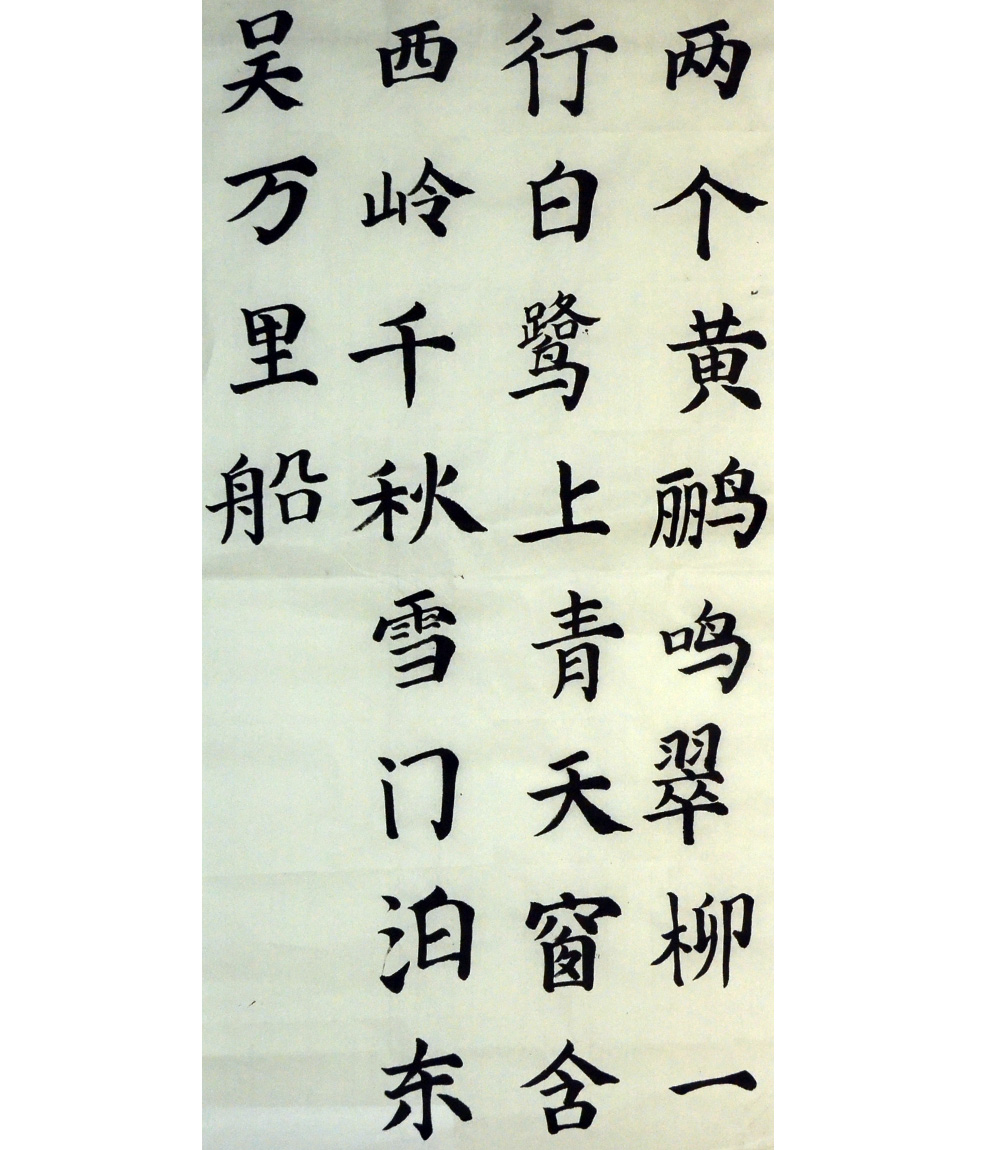 两个黄鹂鸣翠柳一
行白鹭上青天窗含
西岭千秋雪门泊东
吴万里船